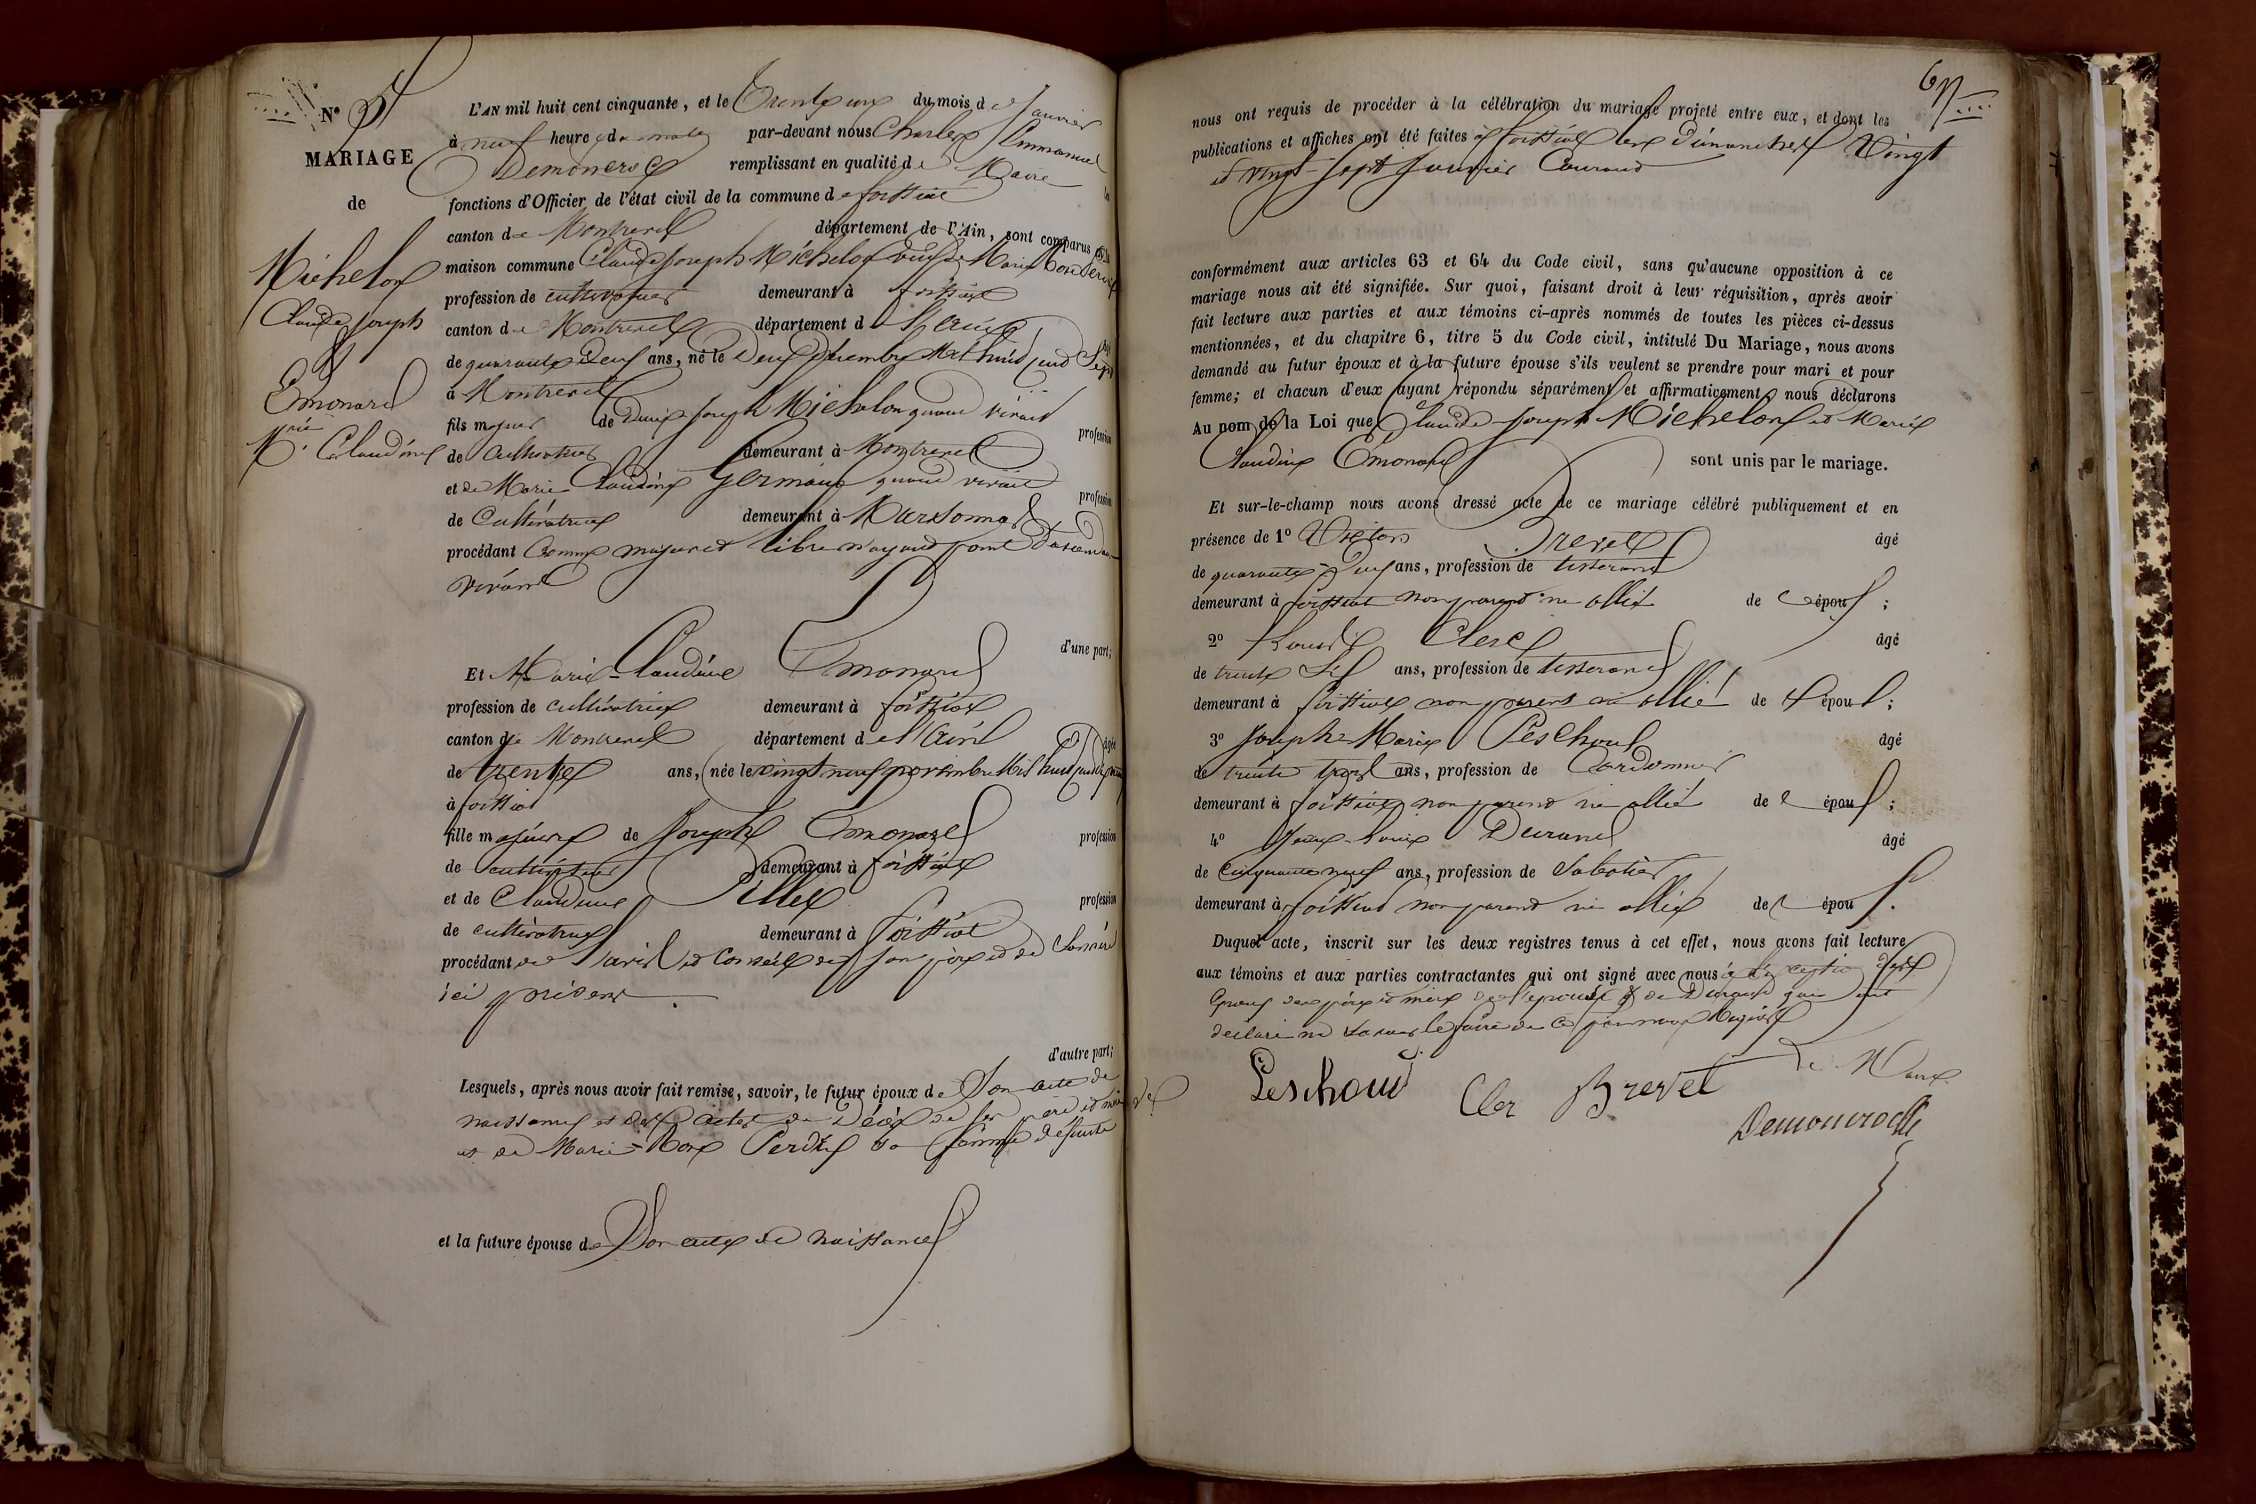 N°
MARIAGE
de
Michelon
Claude Joseph
&
Emonard
Mie Claudine
L'AN mil huit cent cinquante, et le Trente un du mois de Janvier
à neuf heures du matin par-devant nous Charles Emmanuel
remplissant en qualité de Maire les
fonctions d'Officier de l'état civil de la commune de foissiat
canton de Montrevel département de l'Ain, sont comparus en la
maison commune Claude Joseph Michelon veuf de Marie Rose
profession de cultivateur demeurant à foissiat
canton de Montrevel département de l'Ain âgé
de quarante deux ans, né le Mil huit cent Sept
à Montrevel
fils majeur de Joseph Michelon quand vivait profession
de cultivateur demeurant à Montrevel
et de Marie Claudine Germain quand vivait profession
de Cultivatrice demeurant à Marsonnas
procédant comme majeur et libre n'ayant point d'ascendans
vivans
d'une part;
Et Marie-Claudine Emonard
profession de cultivatrice demeurant à foissiat
canton de Montrevel département de l'Ain âgée
de trente ans, née le vingt neuf novembre Mil huit cent
à foissiat
fille majeure de Joseph Emonard profession
de cultivateur demeurant à foissiat
et de Claudine Pillet profession
de cultivatrice demeurant à foissiat
procédant de l'avis et conseil de son père et de sa mère
ici présens
d'autre part;
Lesquels, après nous avoir fait remise, savoir, le futur époux de Son acte de
naissance et des actes de Décès de ses père et mère
et de Marie-Rose Perdrix sa femme défunte
et la future épouse de Son acte de naissance
nous ont requis de procéder à la célébration du mariage projeté entre eux, et dont les
publications et affiches ont été faites à foissiat les Dimanches Vingt
et vingt-sept Janvier Courant
conformément aux articles 63 et 64 du Code civil, sans qu'aucune opposition à ce
mariage nous ait été signifiée. Sur quoi, faisant droit à leur réquisition, après avoir
fait lecture aux parties et aux témoins ci-après nommés de toutes les pièces ci-dessus
mentionnées, et du chapitre 6, titre 5 du Code civil, intitulé Du Mariage, nous avons
demandé au futur époux et à la future épouse s'ils veulent se prendre pour mari et pour
femme; et chacun d'eux ayant répondu séparément et affirmativement, nous déclarons
Au nom de la Loi que Claude Joseph Michelon et Marie
Claudine Emonard sont unis par le mariage.
Et sur-le-champ nous avons dressé acte de ce mariage célébré publiquement et en
présence de 1° Brevet âgé
de quarante-deux ans, profession de tisserand
demeurant à foissiat non parent ni allié de époux;
2° Clerc âgé
de trente six ans, profession de tisserand
demeurant à foissiat non parent ni allié de époux;
3° Joseph-Marie Peschoud âgé
de trente trois ans, profession de Cordonnier
demeurant à foissiat non parent ni allié de époux;
4° Jean-Louis Durand âgé
de cinquante neuf ans, profession de Sabotier
demeurant à foissiat non parent ni allié de époux.
Duquel acte, inscrit sur les deux registres tenus à cet effet, nous avons fait lecture
aux témoins et aux parties contractantes qui ont signé avec nous à l'exception des
époux des père et mère de l'épouse & de Durand qui ont
déclaré ne savoir le faire de ce requis
Peschoud Cler Brevet Le Maire